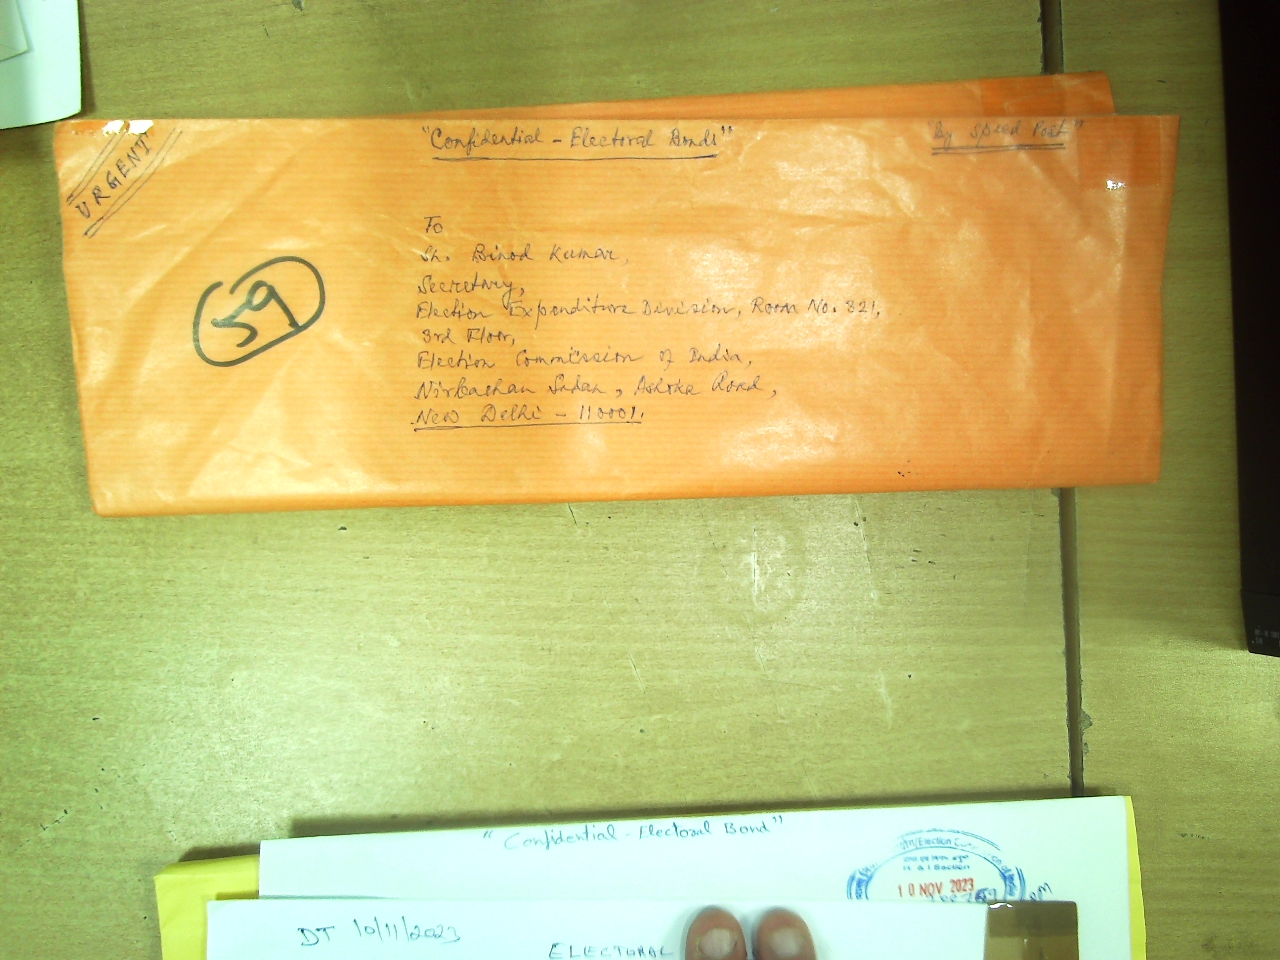 "Confidential - Electoral Bonds"
"By Speed Post"
URGENT
To
Sh. Binod Kumar,
Secretary,
Election Expenditure Division, Room No. 321,
3rd Floor,
Election Commission of India,
Nirbachan Sadan, Ashoka Road,
New Delhi - 110001.
59
"Confidential - Electoral Bond"
10 NOV 2023
DT 10/11/2023
ELECTORAL